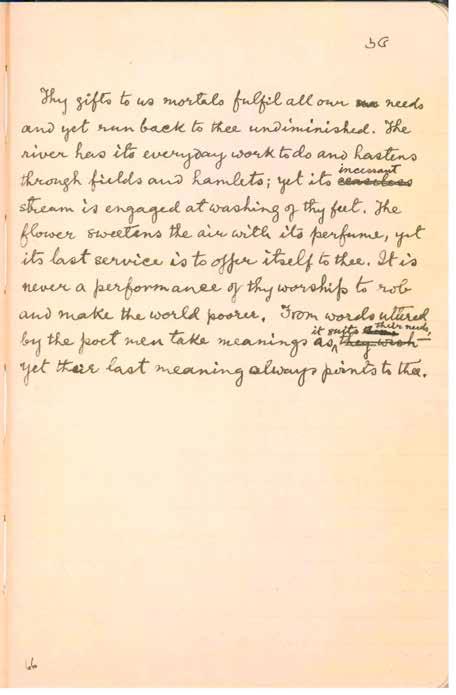 56
Thy gifts to us mortals fulfil all our needs
and yet run back to thee undiminished. The
river has its everyday work to do and hastens
through fields and hamlets; yet its ceaseless incessant
stream is engaged at washing of thy feet. The
flower sweetens the air with its perfume, yet
its last service is to offer itself to thee. It is
never a performance of thy worship to rob
and make the world poorer. From words uttered
by the poet men take meanings as they wish it suits their needs,
yet there last meaning always points to thee.
66